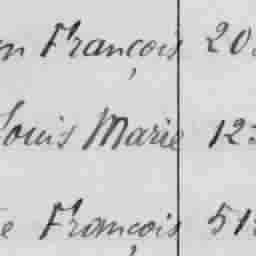 François 20
Louis Marie 12
François 51